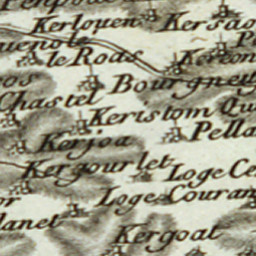 Kerlouen Kersao
le Roas
Bourgney
Chastel
Keristom
Pella
Kerjoa
Kergourlet
Loge Ce
Loge Couran
lanet
Kergoat